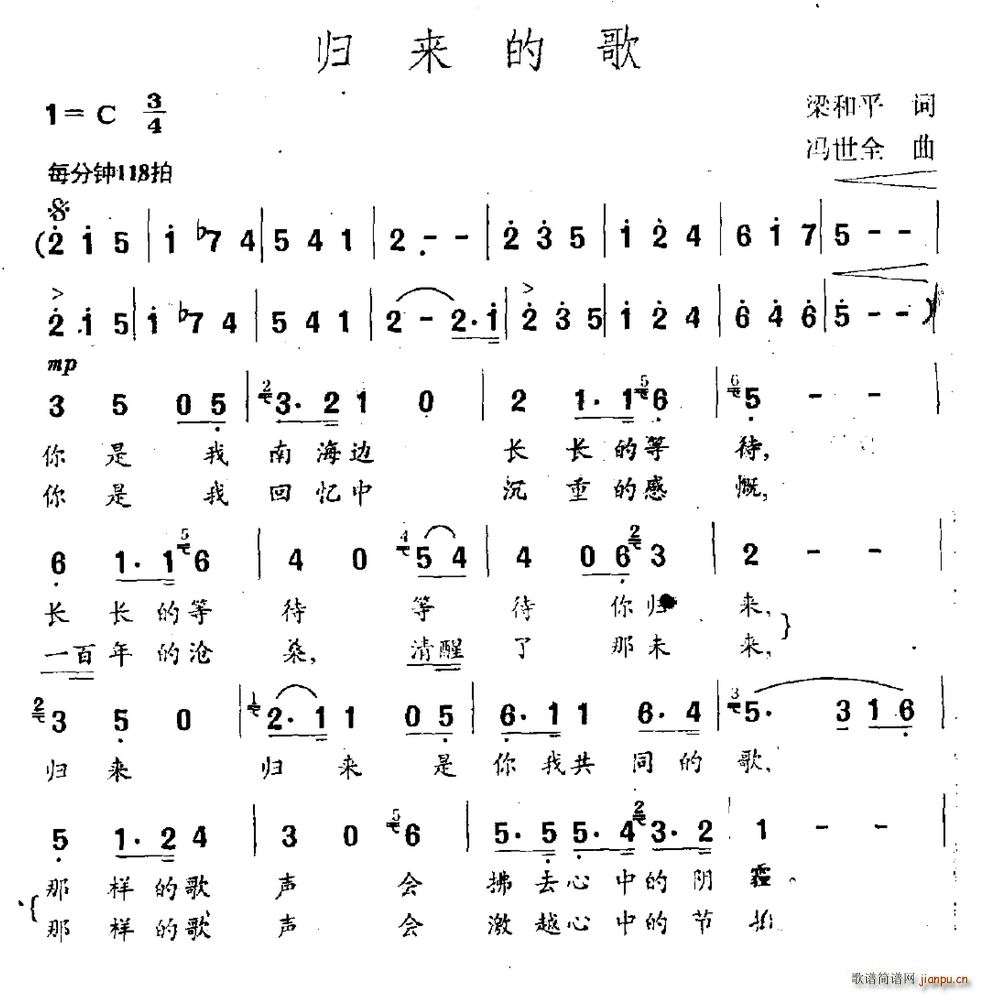 归来的歌
1=C 3/4
梁和平 词
冯世全 曲
每分钟118拍
(2 i 5 | i ♭7 4 | 5 4 1 | 2 - - | 2 3 5 | i 2 4 | 6 i 7 | 5 - - |
2 i 5 | i ♭7 4 | 5 4 1 | 2 - 2·i | 2 3 5 | i 2 4 | 6 4 6 | 5 - - )
mp
3 5 0 5 | 2 3·2 1 0 | 2 1·1 5 6 | 6 5 - - |
你是我南海边 长长的等待,
你是我回忆中 沉重的感慨,
6 1·1 5 6 | 4 0 4 5 4 | 4 0 6 2 3 | 2 - - |
长长的等待 等待你归来,
一百年的沧桑, 清醒了那未来,
2 3 5 0 | 1 2·1 1 0 5 | 6·1 1 6·4 | 3 5· 3 1 6
归来 归来是你我共同的歌,
5 1·2 4 | 3 0 5 6 | 5·5 5·4 2 3·2 | 1 - -
那样的歌声会拂去心中的阴霾。
那样的歌声会激越心中的节拍
歌谱简谱网 jianpu.cn